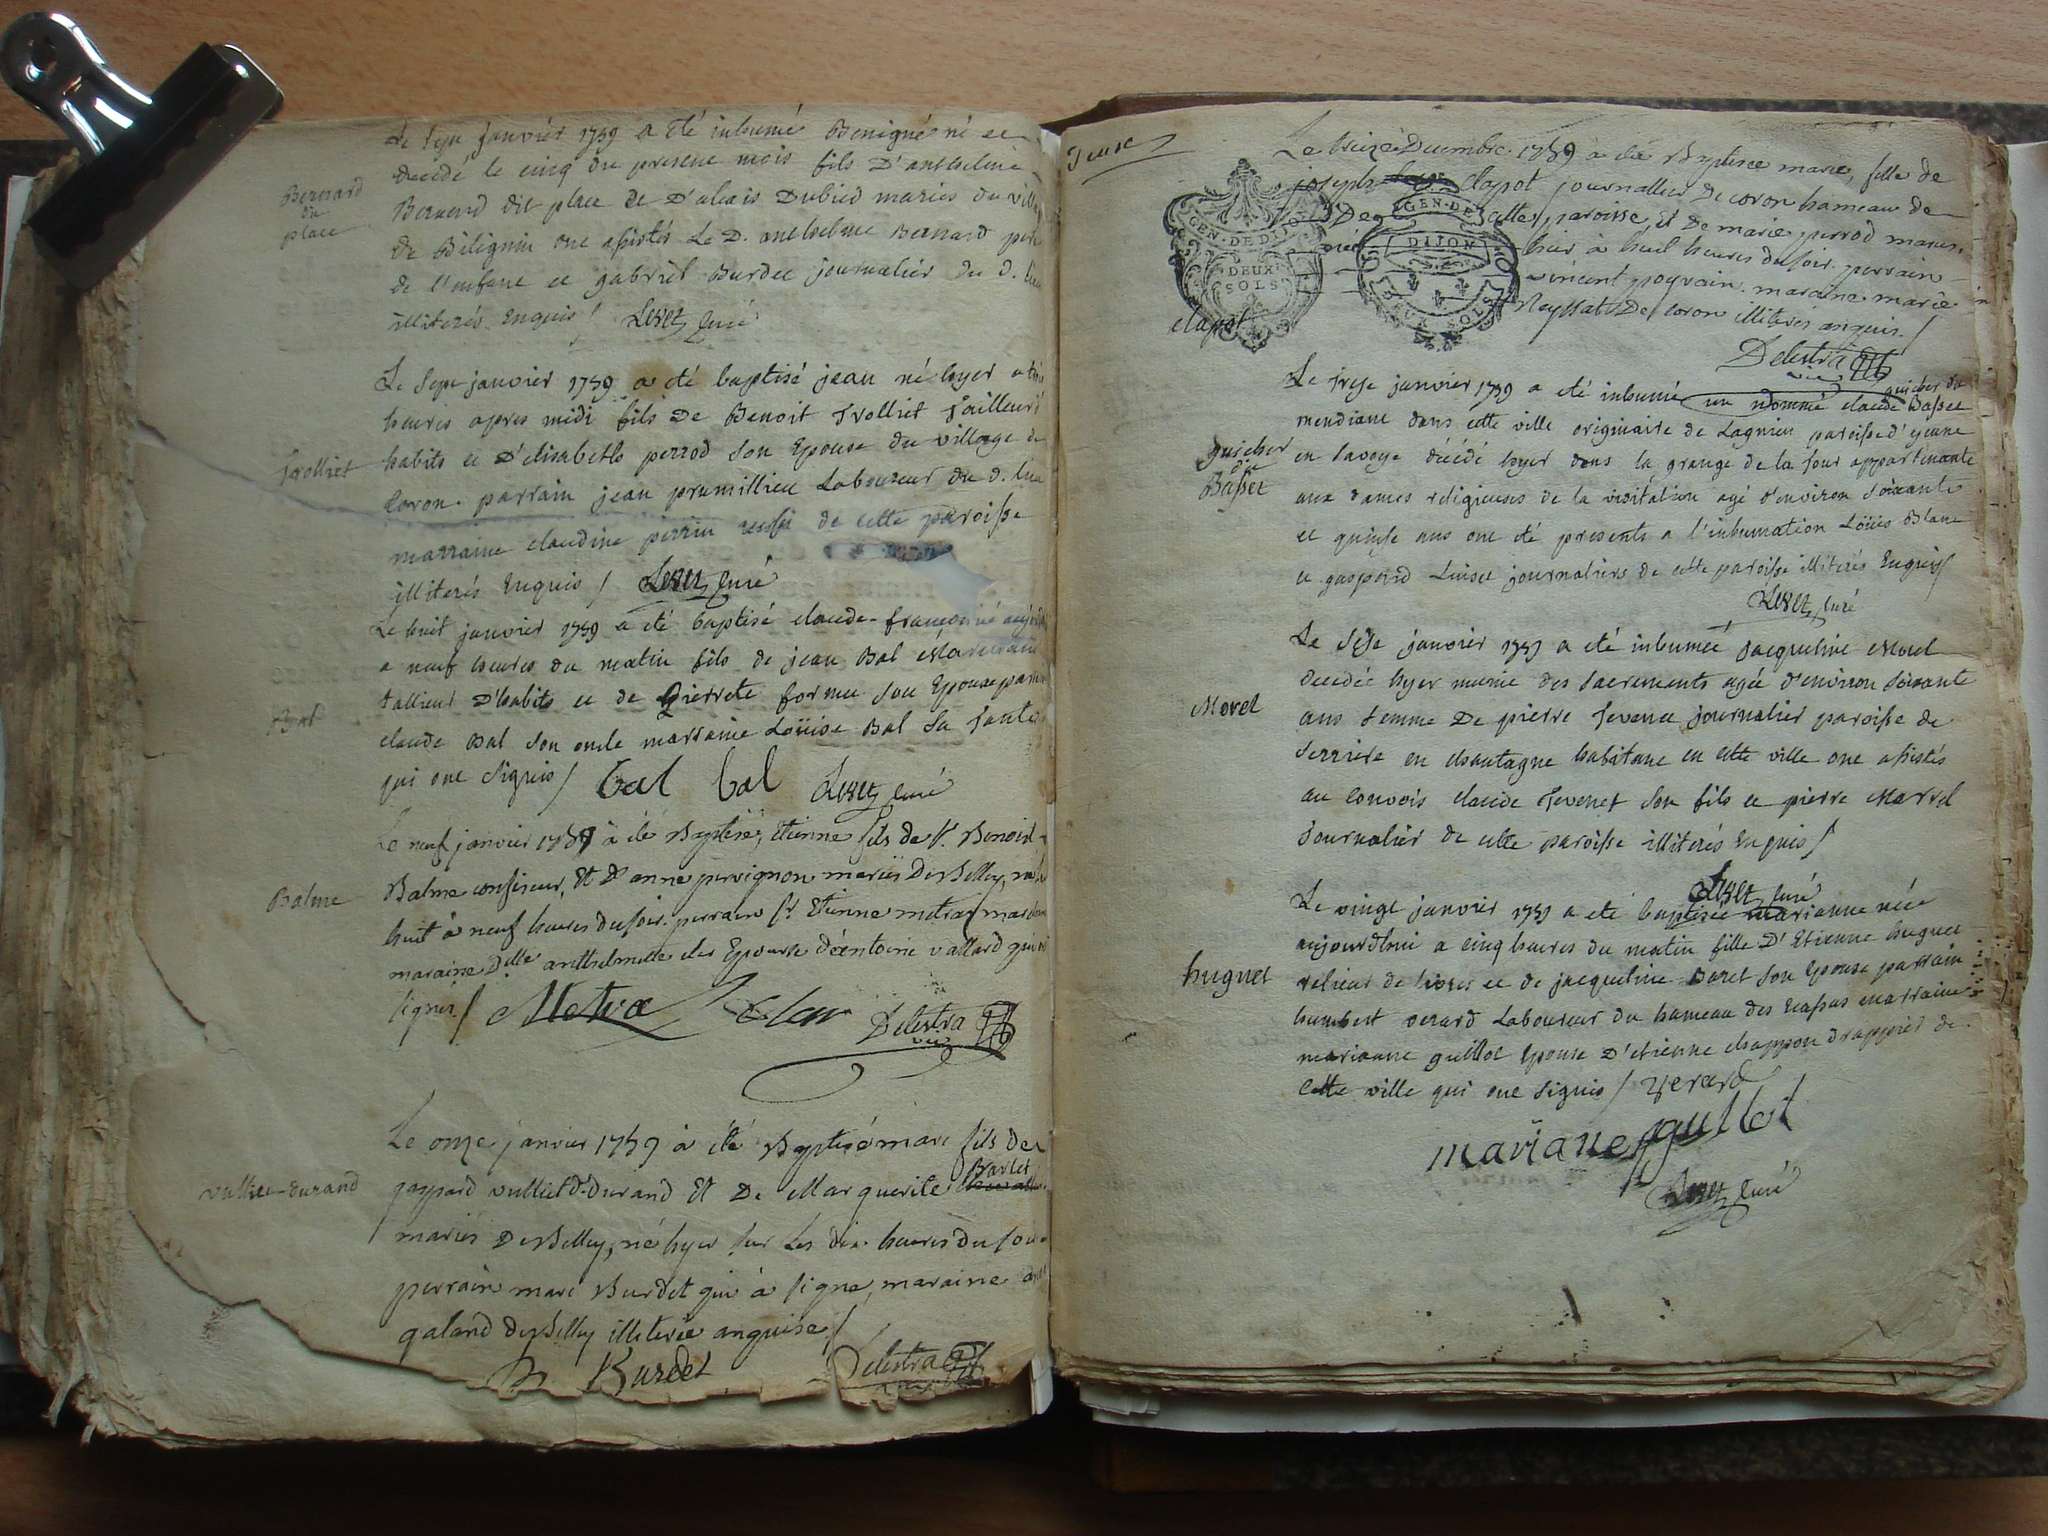 Le sept janvier 1759 a été inhumé Benigne né et
décédé le cinq du present mois fils D'anthelme
Bernard dit place et D'alexis Dubied mariés du village
de Bilignin ont assistés Le D. anthelme Bernard pere
de l'enfant et gabriel Burdet journalier du d. lieu
illiterés Enquis / curé
Bernard
du
place
Le Sept janvier 1759 a été baptisé jean né hyer a trois
heures apres midi fils De Benoit Trolliet Tailleur d'
habits et D'elisabeth perrod son Epouse du village de
Coron parrain jean prumillieu Laboureur du d. lieu
marraine claudine perrin aussi de cette paroisse
illiterés Enquis / curé
Trolliet
Le huit janvier 1759 a été baptisé claude-françois né
a neuf heures du matin fils de jean Bal
tallieur D'habits et de pierrete son Epouse
claude Bal son oncle marraine Loüise Bal sa Tante
qui ont signés / bal bal curé
Bal
Le neuf janvier 1759 à été Baptisé, Etienne fils de Sr. Benoist
Balme confiseur, Et D'anne perrignon mariés De Belley, né
huit à neuf heures du soir. perrain Sr Etienne metras
maraine Dlle anthelmette Epouse d'entoine vallard qui
signés / Metra Delestra
vic
Balme
Le onze janvier 1759 à été Baptisé marc fils de
gaspard vulliet d. durand Et De Marguerite Barlet
mariés De Belley, né hyer sur Les dix heures du soir
perrain marc Burdet qui à signé, maraine
galand de Belley illiterée anquise /
Burdet Delestra
vulliet-durand
Le treize Decembre 1759 a été Baptisée marie, fille de
joseph clapot journallier De coron hameau de
cette paroisse, Et De marie perrod mariés
hier à huit heures du soir. perrain
vincent poyvain. maraine marie
De coron illiterés anquis. /
Delestra
vic
GEN. DE DIJON
DEUX
SOLS
GEN. DE
DIJON
DEUX SOLS
clapot
Le Treze janvier 1759 a été inhumé un nommé claude guicher dit Basset
mendiant dans cette ville originaire de Lagnieu paroisse d'yenne
en savoye décédé hyer dans la grange de la four appartenante
aux dames religieuses de la visitation agé d'environ soixante
et quinse ans ont été presents a l'inhumation Loüis Blanc
et gaspard journaliers de cette paroisse illiterés Enquis /
curé
guicher
dit
Basset
Le Sese janvier 1759 a été inhumée jacqueline Morel
decedée hyer munie des sacrements agée d'environ soixante
ans femme De pierre Tevenet journalier paroisse de
serriere en chautagne habitant en cette ville ont assistés
au convois claude Tevenet son fils et pierre Marrel
journalier de cette paroisse illiterés Enquis /
curé
Morel
Le vingt janvier 1759 a été baptisée marianne née
aujourdhui a cinq heures du matin fille D'Etienne huguet
relieur de livres et de jacqueline Boret son Epouse parrain
humbert verard Laboureur du hameau des Ecassas marraine
marianne guillot Epouse D'etienne chappon drappier de
cette ville qui ont signés / verard
mariane guillot
curé
huguet